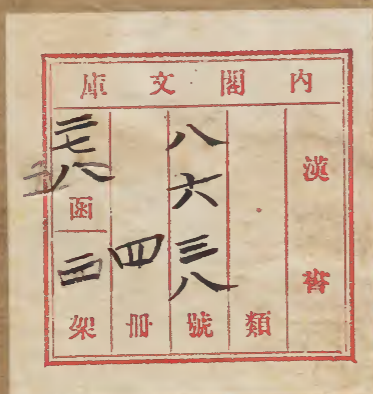 内閣文庫
漢書
類
八六三八號
四冊
三七八函
架